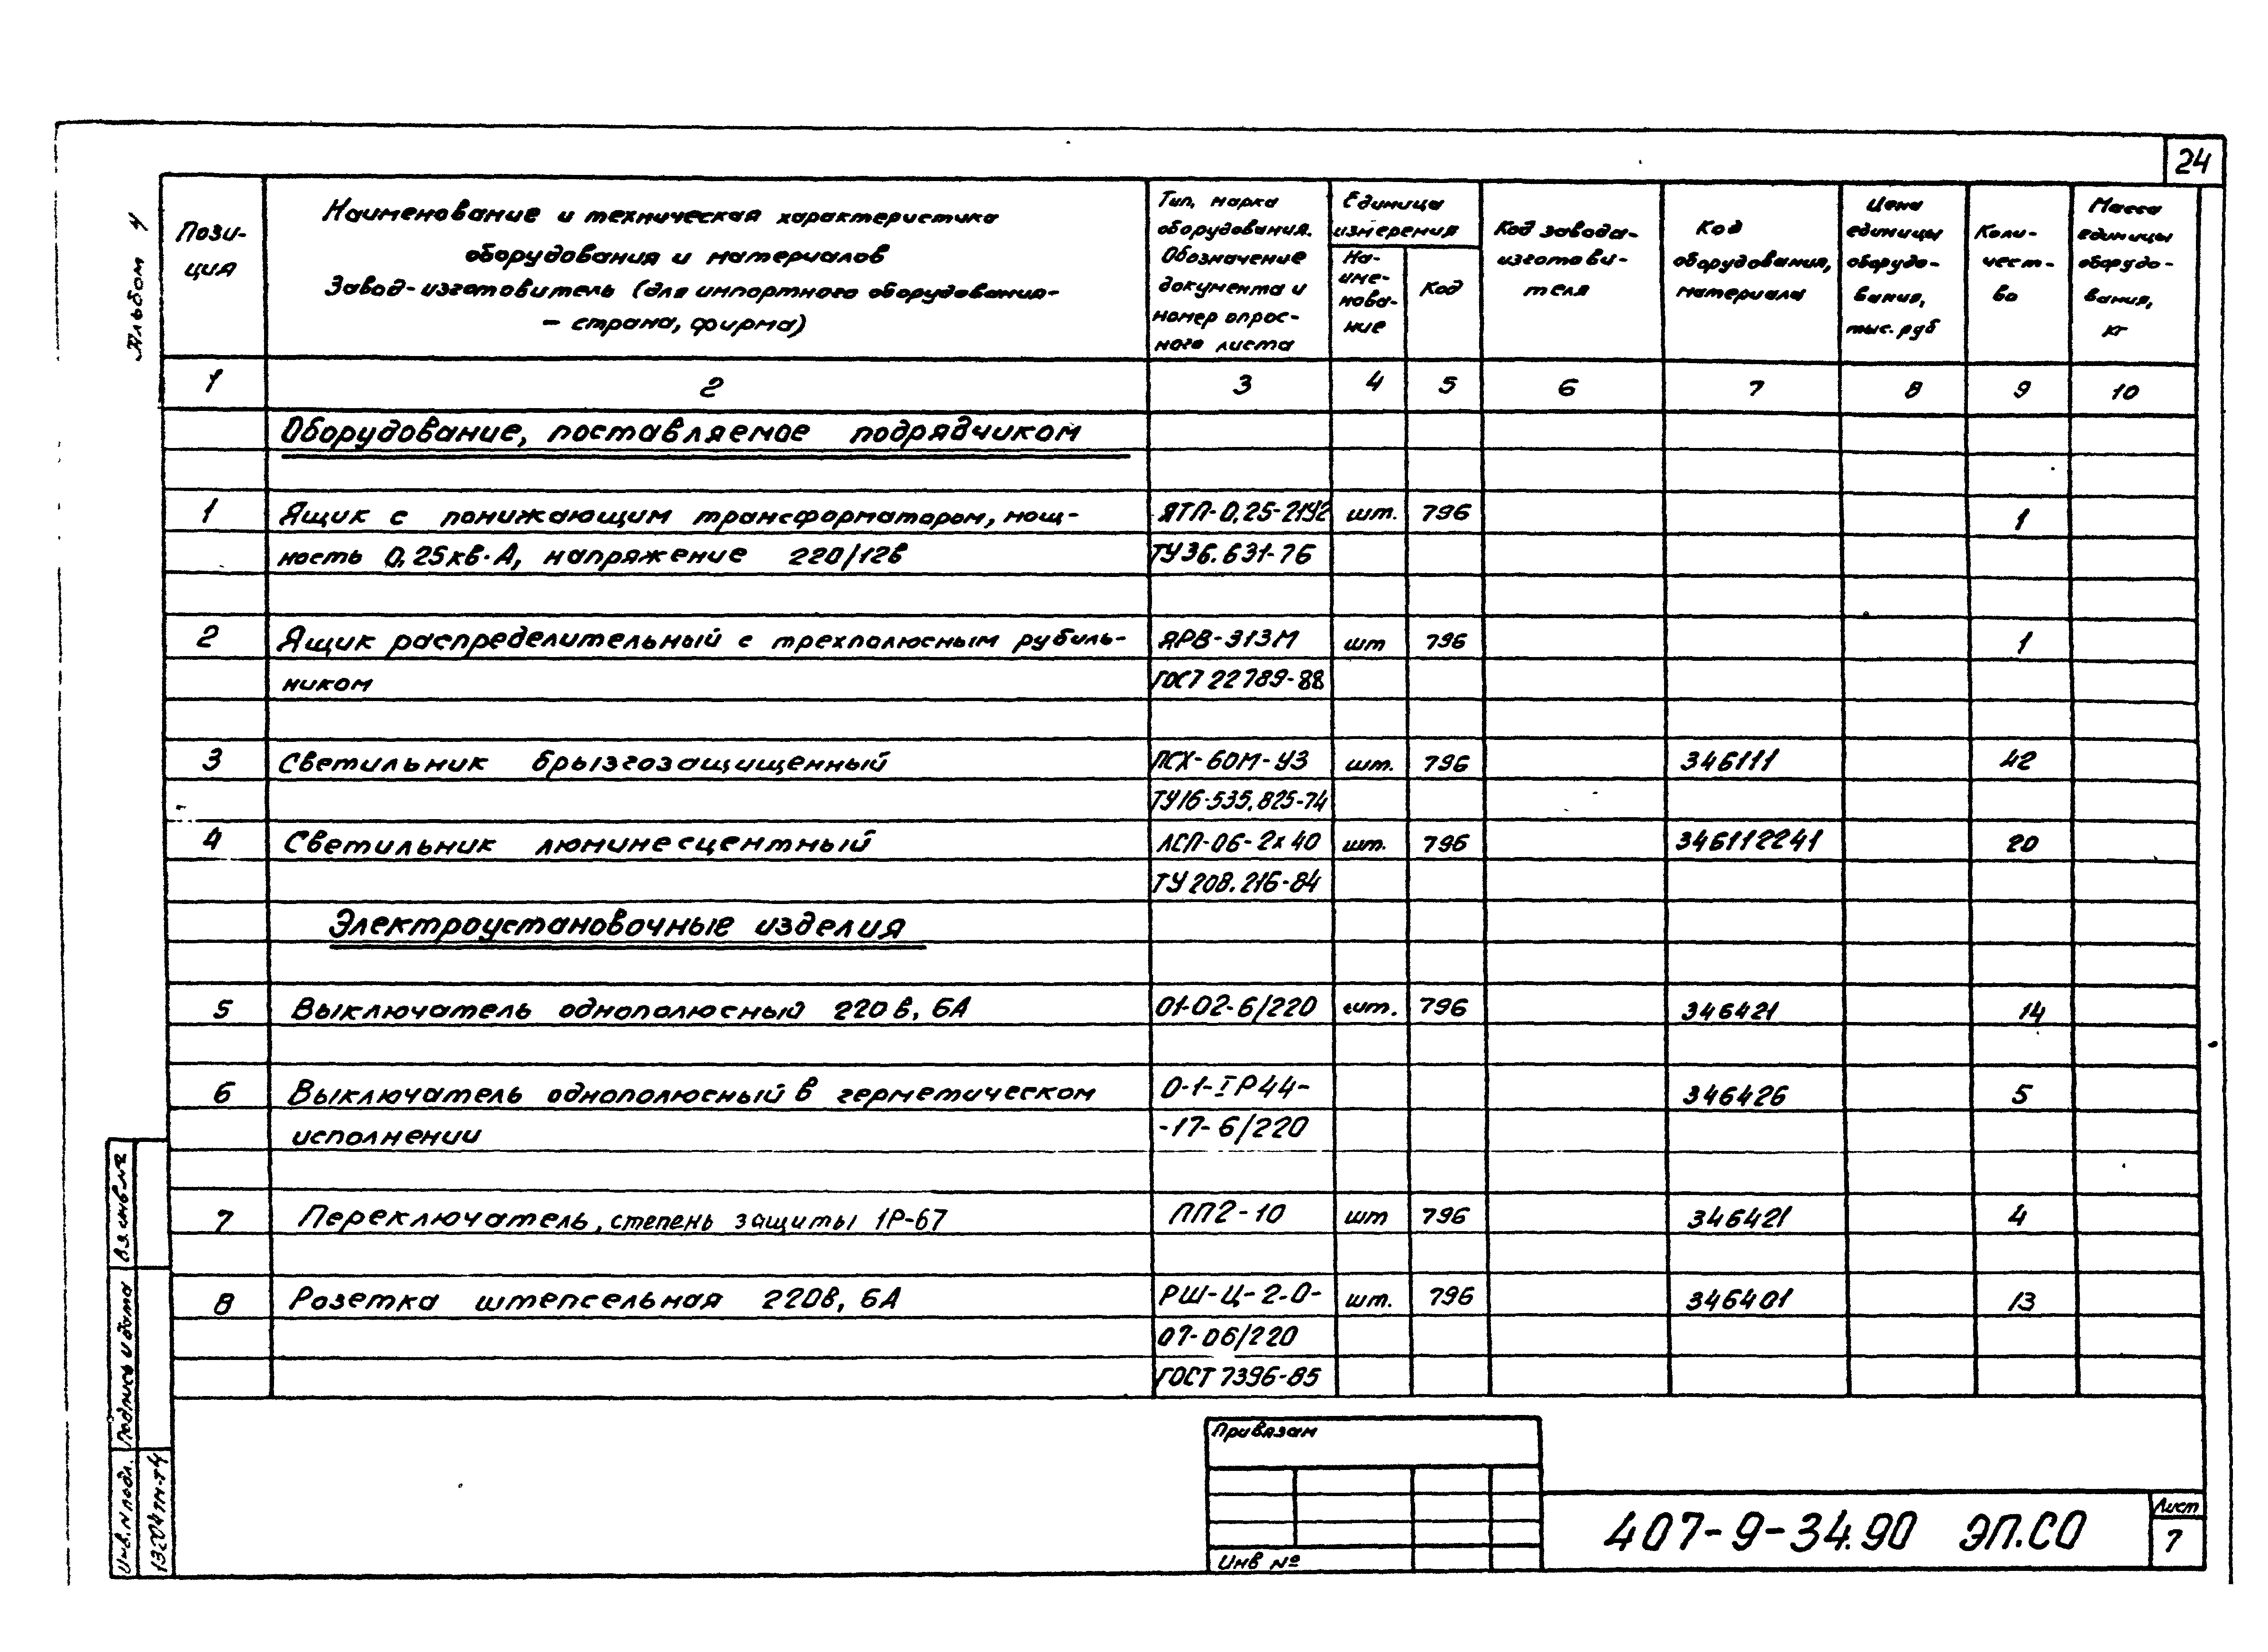 24
Альбом 4
Пози-
ция
Наименование и техническая характеристика
оборудования и материалов
Завод-изготовитель (для импортного оборудования-
- страна, фирма)
Тип, марка
оборудования.
Обозначение
документа и
номер опрос-
ного листа
Единица
измерения
На-
име-
нова-
ние
Код
Код завода-
изготови-
теля
Код
оборудования,
материала
Цена
единицы
оборудо-
вания,
тыс. руб
Коли-
чест-
во
Масса
единицы
оборудо-
вания,
кг
1 2 3 4 5 6 7 8 9 10
Оборудование, поставляемое подрядчиком
1 Ящик с понижающим трансформатором, мощ- ЯТП-0,25-21У2 шт. 796 1
ность 0,25кВ·А, напряжение 220/12в ТУ36.631-76
2 Ящик распределительный с трехполюсным рубиль- ЯРВ-313М шт 796 1
ником ГОСТ 22789-88
3 Светильник брызгозащищенный ПСХ-60М-У3 шт. 796 346111 42
ТУ16-535.825-74
4 Светильник люминесцентный ЛСП-06-2х40 шт. 796 346112241 20
ТУ 208.216-84
Электроустановочные изделия
5 Выключатель однополюсный 220в, 6А 01-02-6/220 шт. 796 346421 14
6 Выключатель однополюсный в герметическом 0-1-IР44- 346426 5
исполнении -17-6/220
7 Переключатель, степень защиты 1Р-67 ПП2-10 шт 796 346421 4
8 Розетка штепсельная 220в, 6А РШ-Ц-2-0- шт. 796 346401 13
07-06/220
ГОСТ 7396-85
Вз. инв. №
Подпись и дата
Инв. N подл.
13204тм-т4
Привязан
Инв №
407-9-34.90 ЭП.СО
Лист
7